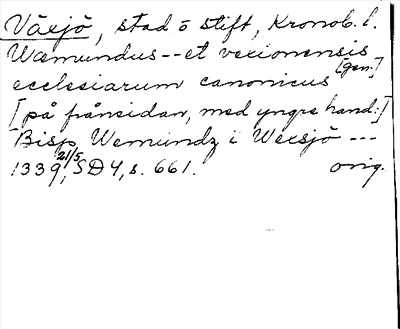 Växjö, stad o stift, Kronob. l.
Wæmundus -- et vexionensis
ecclesiarum canonicus [gen.]
[på frånsidan, med yngre hand:]
Bisp Wemundz i Wexsjö ---
1339 21/5, SD 4, s. 661. orig.